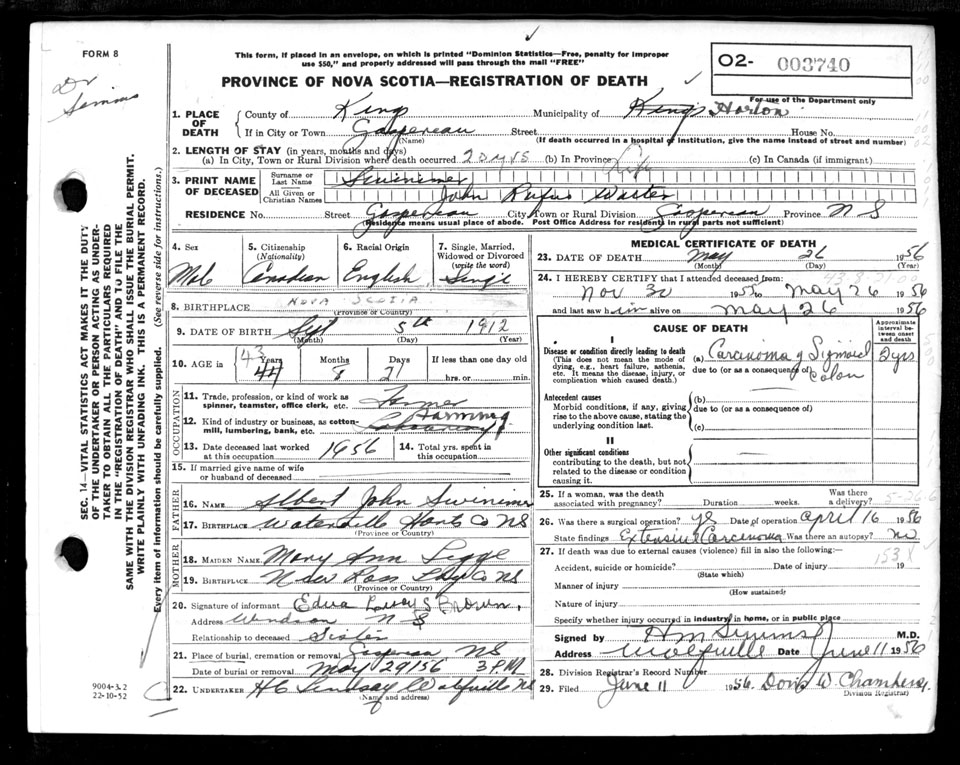 FORM 8
Dr Simms
This form, if placed in an envelope, on which is printed "Dominion Statistics—Free, penalty for improper
use $50," and properly addressed will pass through the mail "FREE"
PROVINCE OF NOVA SCOTIA—REGISTRATION OF DEATH
02- 003740
For use of the Department only
SEC. 14—VITAL STATISTICS ACT MAKES IT THE DUTY
OF THE UNDERTAKER OR PERSON ACTING AS UNDER-
TAKER TO OBTAIN ALL THE PARTICULARS REQUIRED
IN THE "REGISTRATION OF DEATH" AND TO FILE THE
SAME WITH THE DIVISION REGISTRAR WHO SHALL ISSUE THE BURIAL PERMIT.
WRITE PLAINLY WITH UNFADING INK. THIS IS A PERMANENT RECORD.
Every item of information should be carefully supplied. (See reverse side for instructions.)
1. PLACE OF DEATH
County of Kings Municipality of Kings Horton
If in City or Town Gaspereau Street House No.
(Name) (If death occurred in a hospital or institution, give the name instead of street and number)
2. LENGTH OF STAY (in years, months and days)
(a) In City, Town or Rural Division where death occurred 20 yrs (b) In Province Life (c) In Canada (if immigrant)
3. PRINT NAME OF DECEASED
Surname or Last Name Swinimer
All Given or Christian Names John Rufus Walter
RESIDENCE No. Street Gaspereau City, Town or Rural Division Gaspereau Province N S
Residence means usual place of abode. Post Office Address for residents in rural parts not sufficient)
4. Sex Male
5. Citizenship (Nationality) Canadian
6. Racial Origin English
7. Single, Married, Widowed or Divorced (write the word) Single
8. BIRTHPLACE NOVA SCOTIA
(Province or Country)
9. DATE OF BIRTH Sept 5th 1912
(Month) (Day) (Year)
10. AGE in 43 44 Years Months 8 Days 21 If less than one day old
hrs. or min.
OCCUPATION
11. Trade, profession, or kind of work as
spinner, teamster, office clerk, etc. Farmer
12. Kind of industry or business, as cotton-
mill, lumbering, bank, etc. Farming
13. Date deceased last worked
at this occupation 1956
14. Total yrs. spent in
this occupation
15. If married give name of wife
or husband of deceased
FATHER
16. NAME Albert John Swinimer
17. BIRTHPLACE Waterville Hants Co NS
(Province or Country)
MOTHER
18. MAIDEN NAME Mary Ann Legge
19. BIRTHPLACE New Ross NS
(Province or Country)
20. Signature of informant Edna Brown
Address Windsor N S
Relationship to deceased Sister
21. Place of burial, cremation or removal Gaspereau NS
Date of burial or removal May 29/56 3 PM
22. UNDERTAKER H C Lindsay Wolfville NS
(Name and address)
9004-3.2
22-10-52
MEDICAL CERTIFICATE OF DEATH
23. DATE OF DEATH May 26 1956
(Month) (Day) (Year)
24. I HEREBY CERTIFY that I attended deceased from:
Nov 30 1953 to May 26 1956
and last saw him alive on May 26 1956
CAUSE OF DEATH
Approximate interval between onset and death
I
Disease or condition directly leading to death
(This does not mean the mode of dying, e.g., heart failure, asthenia, etc. It means the disease, injury, or complication which caused death.)
(a) Carcinoma of Sigmoid Colon 3 yrs
due to (or as a consequence of)
Antecedent causes
Morbid conditions, if any, giving rise to the above cause, stating the underlying condition last.
(b)
due to (or as a consequence of)
(c)
II
Other significant conditions
contributing to the death, but not related to the disease or condition causing it.
25. If a woman, was the death
associated with pregnancy? Duration weeks. Was there a delivery?
26. Was there a surgical operation? yes Date of operation April 16 1956
State findings Extensive Carcinoma Was there an autopsy? no
27. If death was due to external causes (violence) fill in also the following:—
153X
Accident, suicide or homicide? Date of injury 19
(State which)
Manner of injury
(How sustained)
Nature of injury
Specify whether injury occurred in industry, in home, or in public place
Signed by H M Simms M.D.
Address Wolfville Date June 11 1956
28. Division Registrar's Record Number
29. Filed June 11 1956. Doris W. Chambers
Division Registrar.